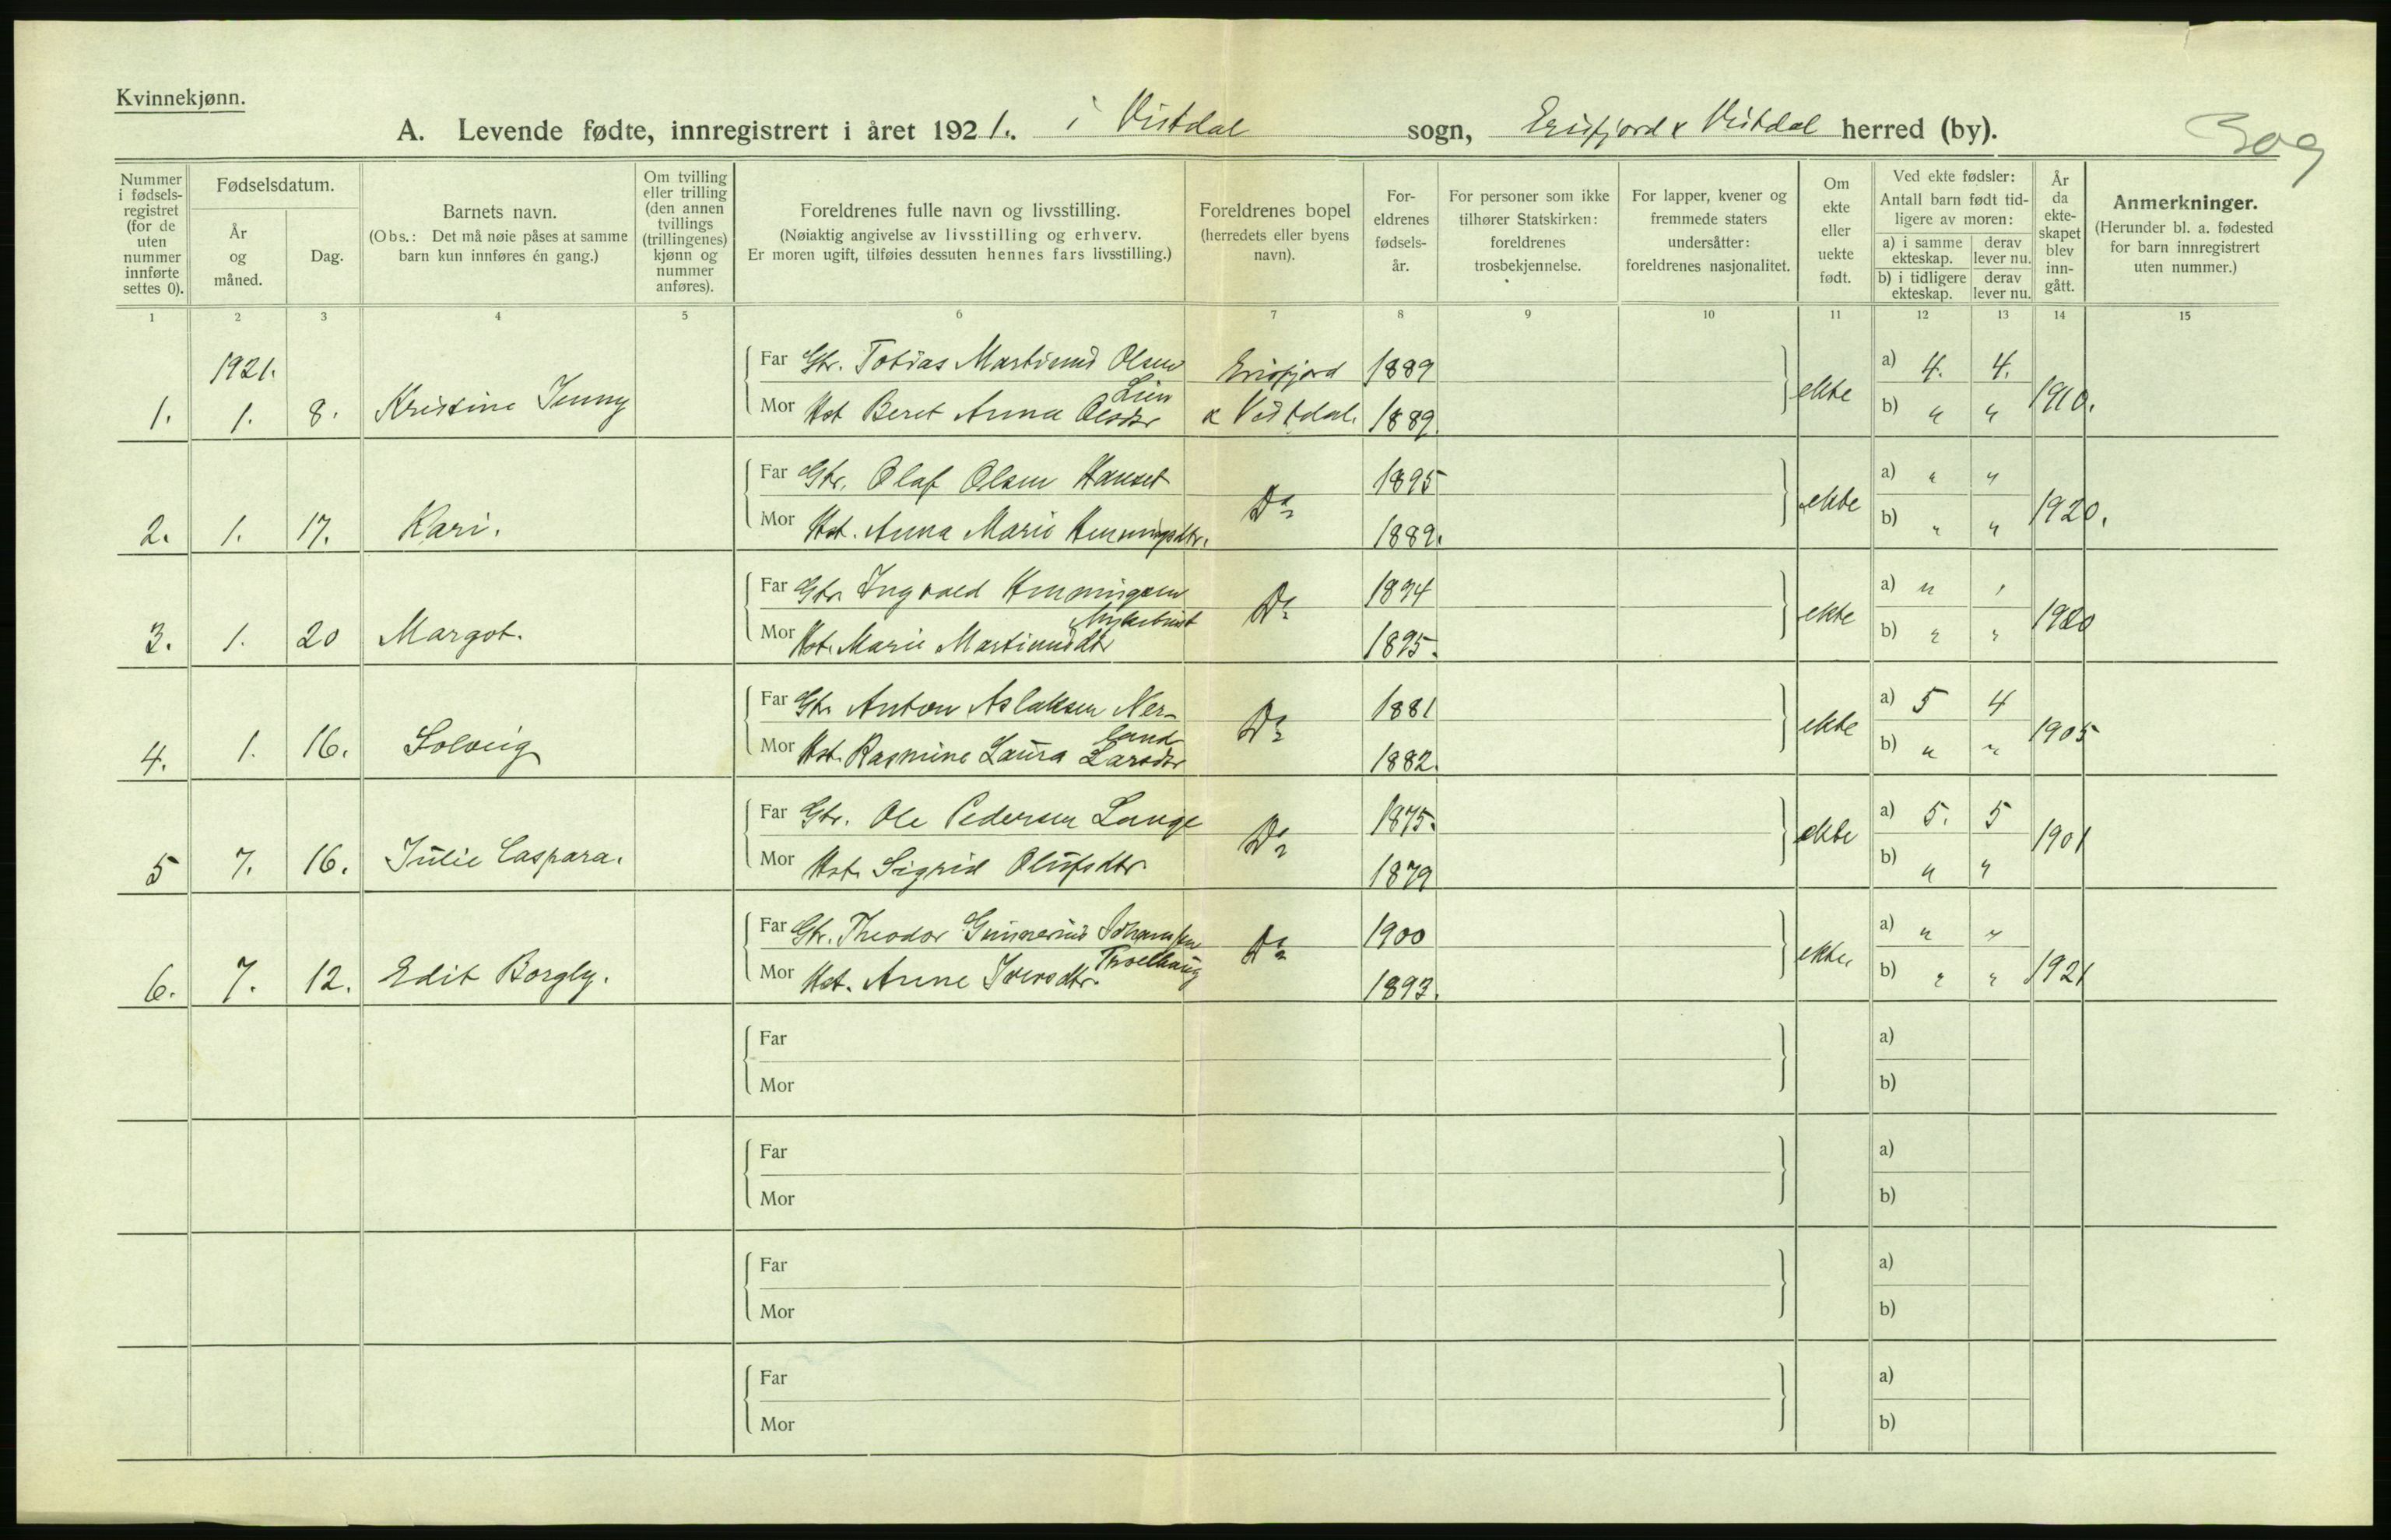 Kvinnekjønn.
A. Levende fødte, innregistrert i året 1921. i Vistdal sogn, Erisfjord & Vistdal herred (by).
309
Nummer i fødselsregistret (for de uten nummer innførte settes 0).
Fødselsdatum.
År og måned.
Dag.
Barnets navn.
(Obs.: Det må nøie påses at samme barn kun innføres én gang.)
Om tvilling eller trilling (den annen tvillings (trillingenes) kjønn og nummer anføres).
Foreldrenes fulle navn og livsstilling.
(Nøiaktig angivelse av livsstilling og erhverv.
Er moren ugift, tilføies dessuten hennes fars livsstilling.)
Foreldrenes bopel (herredets eller byens navn).
Foreldrenes fødselsår.
For personer som ikke tilhører Statskirken: foreldrenes trosbekjennelse.
For lapper, kvener og fremmede staters undersåtter: foreldrenes nasjonalitet.
Om ekte eller uekte født.
Ved ekte fødsler:
Antall barn født tidligere av moren:
a) i samme ekteskap. derav lever nu.
b) i tidligere ekteskap. derav lever nu.
År da ekteskapet blev inngått.
Anmerkninger.
(Herunder bl. a. fødested for barn innregistrert uten nummer.)
1 2 3 4 5 6 7 8 9 10 11 12 13 14 15
1921.
Far Gbr. Tobias Martinus Olsen Lien Erisfjord 1889 a) 4. 4.
1. 1. 8. Kristine Jenny Mor Hst Beret Anna Olsdtr & Vistdal. 1889. ekte b) " " 1910.
Far Gbr. Olaf Olsen Hauset Do 1895 a) " "
2. 1. 17. Kari. Mor Hst. Anna Marie Henningsdtr. 1889. ekte b) " " 1920.
Far Gbr. Ingvald Henningsen Do 1894 a) " "
3. 1. 20 Margot. Mor Hst. Marie Martinusdtr 1895. ekte b) " " 1920
Far Gbr. Anton Aslaksen Nerland Do 1881 a) 5 4
4. 1. 16. Solveig Mor Hst. Rasmine Laura Larsdtr 1882. ekte b) " " 1905
Far Gbr. Ole Pedersen Lange Do 1875. a) 5. 5
5 7. 16. Julie Caspara. Mor Hst. Sigrid Olufsdtr. 1879 ekte b) " " 1901
Far Gbr. Theodor Gunnerius Johansen Do 1900 a) " "
6. 7. 12. Edit Borgly. Mor Hst. Anne Iversdtr. 1893. ekte. b) " " 1921
Far a)
Mor b)
Far a)
Mor b)
Far a)
Mor b)
Far a)
Mor b)